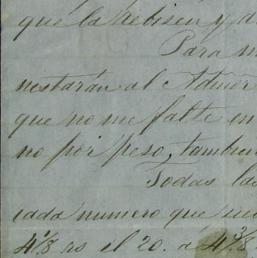 que la rebisen y a
Para m
nestarán al Admor
que no me falte en
no por peso, tambien
Todas las
cada numero que
4 1/8 rs el 20. á 4 3/8